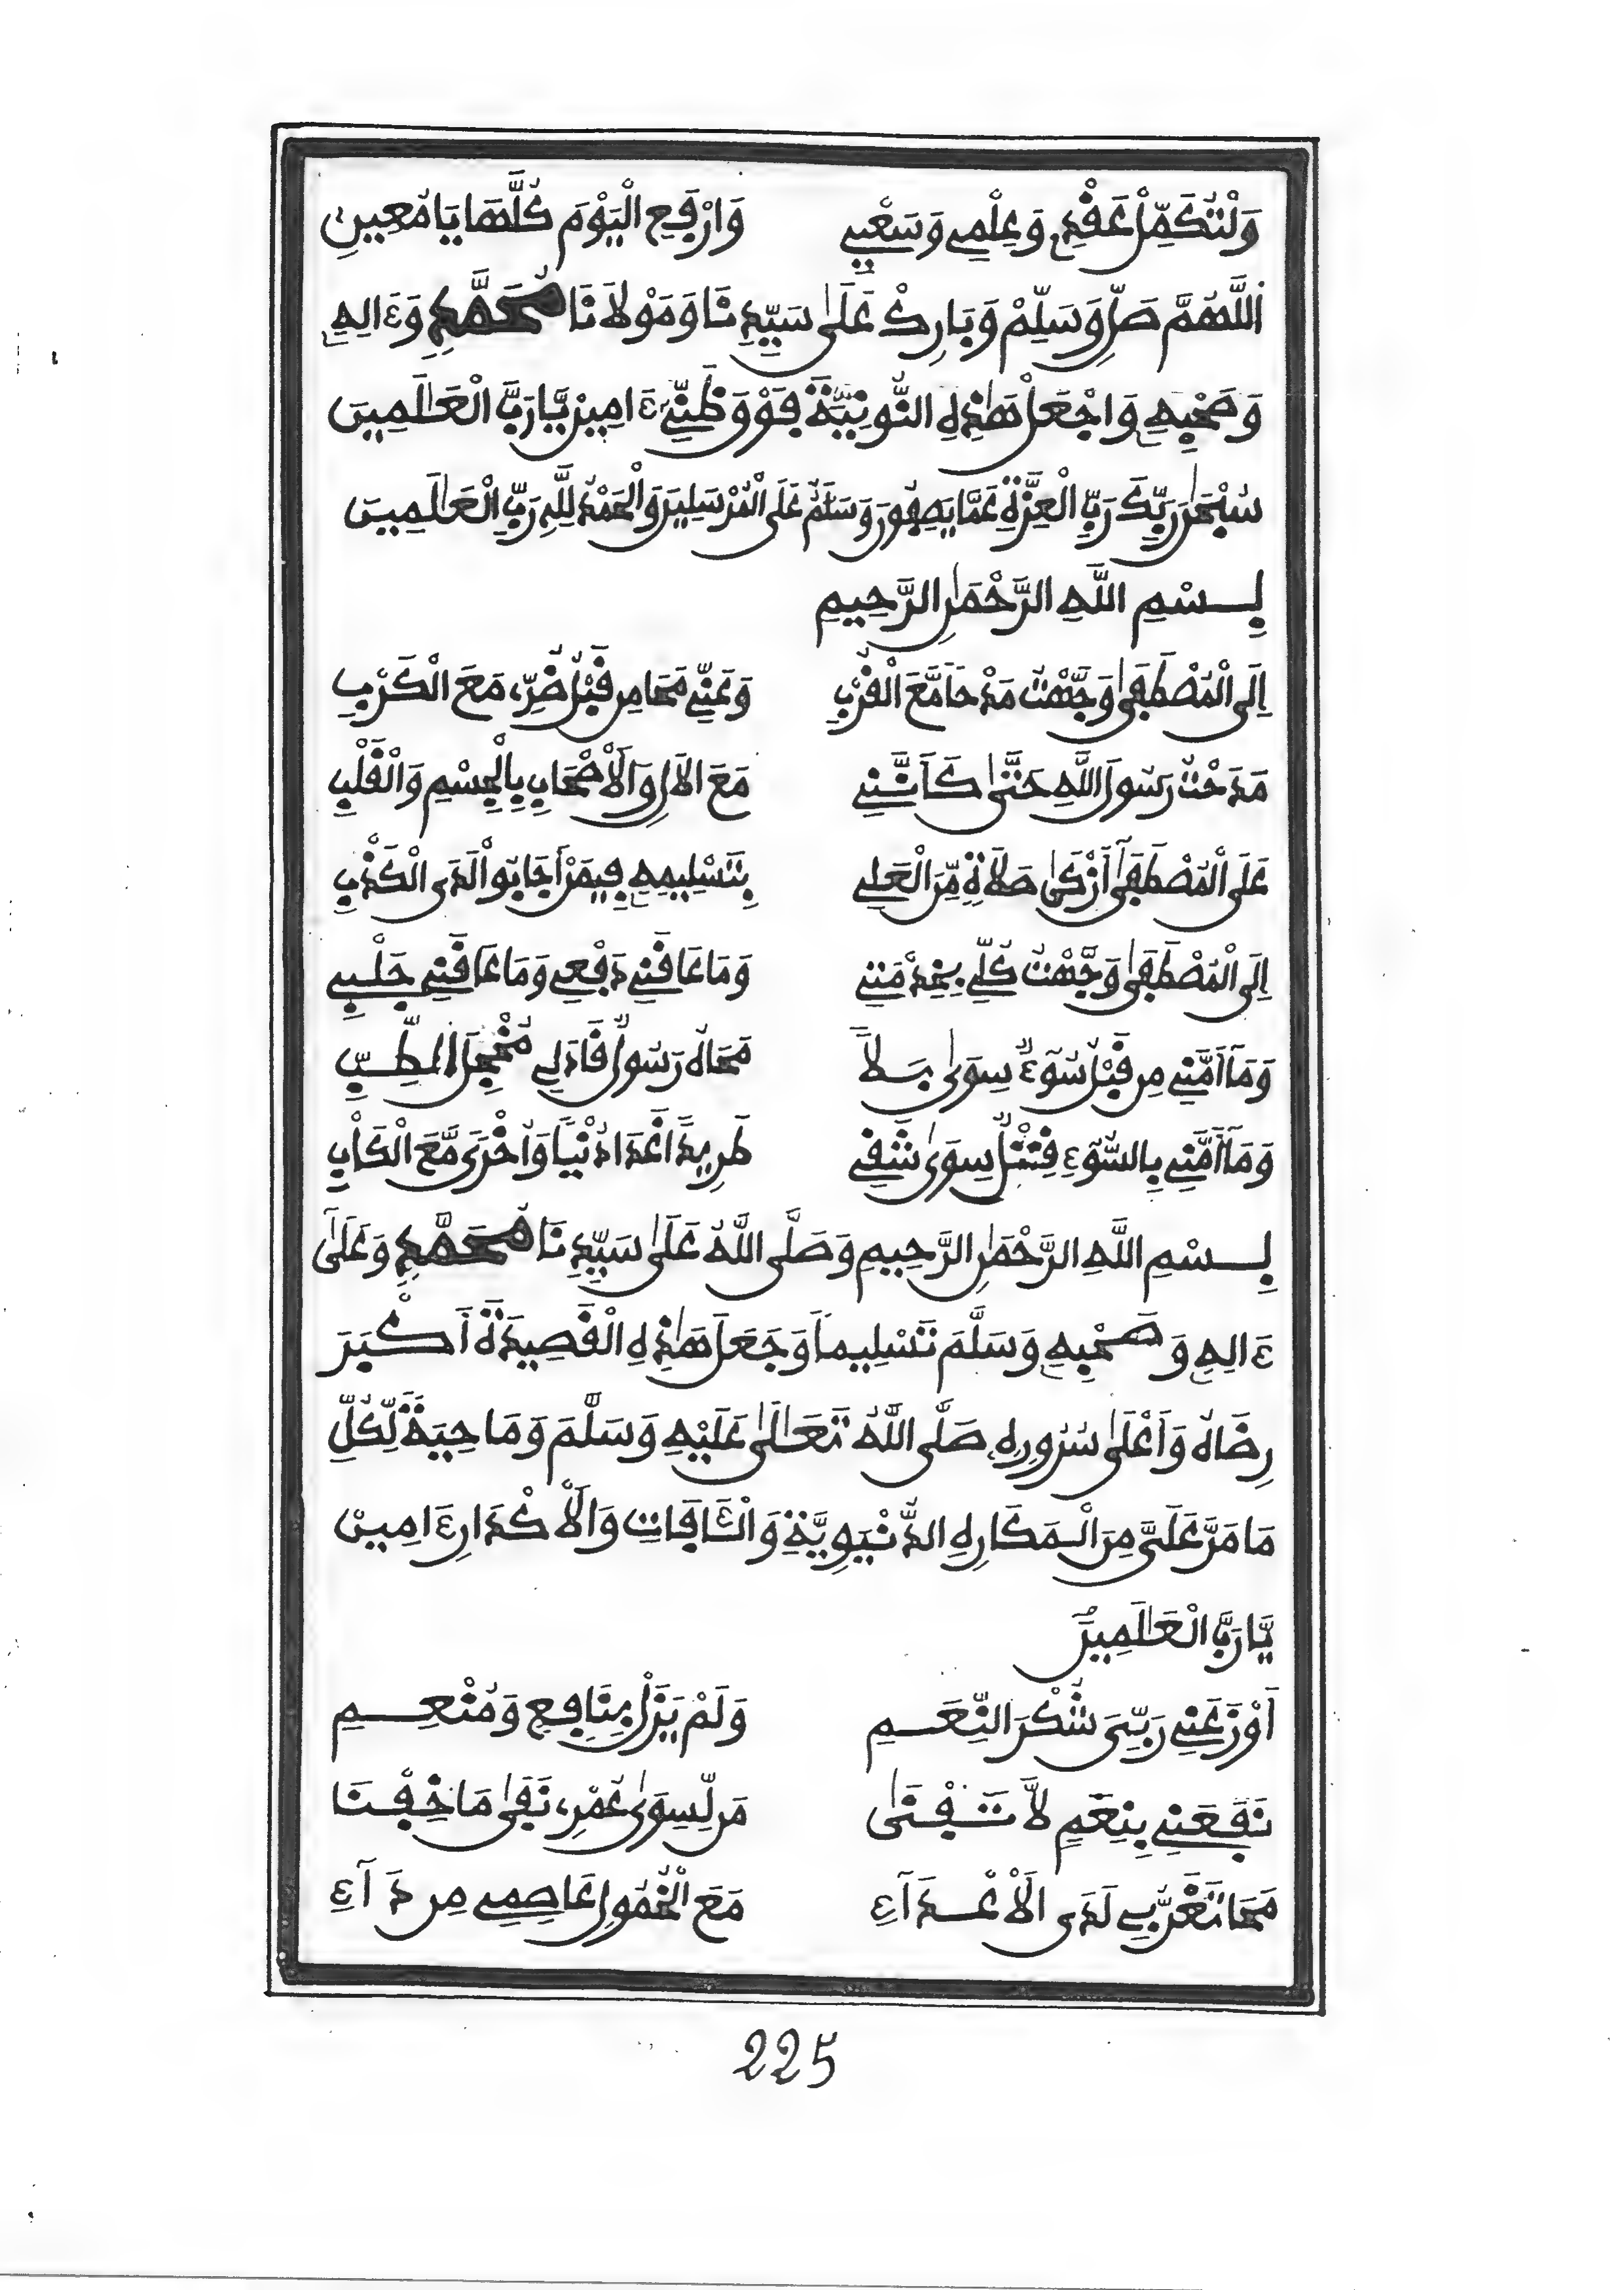 وَلْتُكَمِّلْ عَقْدِي وَعِلْمِي وَسَعْيِي وَارْفَعِ الْيَوْمَ كُلَّهَا يَا مُعِينِ
اَللَّهُمَّ صَلِّ وَسَلِّمْ وَبَارِكْ عَلَى سَيِّدِنَا وَمَوْلَانَا مُحَمَّدٍ وَءَالِهِ
وَصَحْبِهِ وَاجْعَلْ هَٰذِهِ النُّونِيَّةَ فَوْقَ ظَنِّي ءَامِينَ يَّا رَبَّ الْعَٰلَمِينَ
سُبْحَٰنَ رَبِّكَ رَبِّ الْعِزَّةِ عَمَّا يَصِفُونَ وَسَلَٰمٌ عَلَى الْمُرْسَلِينَ وَالْحَمْدُ لِلَّهِ رَبِّ الْعَٰلَمِينَ
بِسْمِ اللَّهِ الرَّحْمَٰنِ الرَّحِيمِ
اِلَى الْمُصْطَفَىٰ وَجَّهْتُ مَدْحاً مَّعَ الْقُرْبِ وَعَنِّي مَحَا مِن قَبْلُ ضُرِّي مَعَ الْكَرْبِ
مَدَحْتُ رَسُولَ اللَّهِ حَتَّىٰ كَأَنَّنِي مَعَ الْآلِ وَالْأَصْحَابِ بِالْجِسْمِ وَالْقَلْبِ
عَلَى الْمُصْطَفَىٰ أَزْكَىٰ صَلَاةٍ مِّنَ الْعَلِي بِتَسْلِيمِهِ فِيمَنْ أَجَابُوا لَدَى الْكَذْبِ
اِلَى الْمُصْطَفَىٰ وَجَّهْتُ كُلِّي بِخِدْمَتِي وَمَا عَاقَنِي دَفْعِي وَمَا عَاقَنِي جَلْبِي
وَمَا أَمَّنِي مِن قَبْلُ سُوٓءٌ سِوَىٰ بَلَا مَحَاهُ رَسُولٌ قَادَ لِي مُخْجِلَ الطِّبِّ
وَمَا أَمَّنِي بِالسُّوٓءِ قَبْلُ سِوَىٰ شَقِي طَرِيداً غَدَا دُنْيَا وَأُخْرَىٰ مَّعَ الْكَلْبِ
بِسْمِ اللَّهِ الرَّحْمَٰنِ الرَّحِيمِ وَصَلَّى اللَّهُ عَلَىٰ سَيِّدِنَا مُحَمَّدٍ وَعَلَىٰ
ءَالِهِ وَصَحْبِهِ وَسَلَّمَ تَسْلِيماً وَجَعَلَ هَٰذِهِ الْقَصِيدَةَ أَكْبَرَ
رِضَاهُ وَأَعْلَىٰ سُرُورِهِ صَلَّى اللَّهُ تَعَالَىٰ عَلَيْهِ وَسَلَّمَ وَمَاحِيَةً لِّكُلِّ
مَا مَرَّ عَلَيَّ مِنَ الْمَكَارِهِ الدُّنْيَوِيَّةِ وَالْـَٔافَاتِ وَالْأَكْدَارِ ءَامِينْ
يَّا رَبَّ الْعَٰلَمِينَ
أَوْزَعَنِي رَبِّيَ شُكْرَ النِّعَمِ وَلَمْ يَزَلْ بِنَافِعٍ وَمُنْعِمِ
نَفَعَنِي بِنِعَمٍ لَّا تَفْنَىٰ مَن لِّسِوَىٰ عُمْرِي نَفَىٰ مَا خِفْنَا
مَحَا تَغَرُّبِي لَدَى الْأَعْدَآءِ مَعَ الْخُمُولِ عَاصِمِي مِن دَآءِ
225